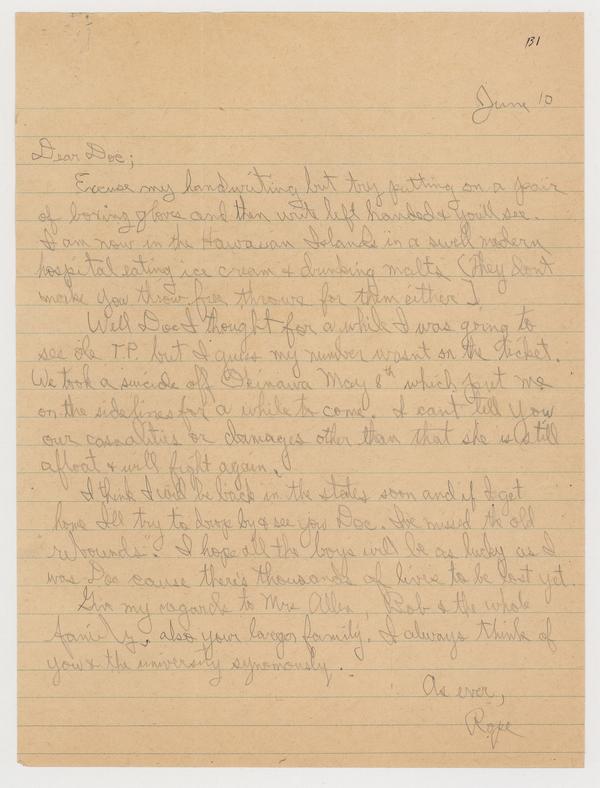 131
June 10
Dear Doc;
Excuse my handwriting but try putting on a pair
of boxing glove and then write left handed & you'll see.
I am now in the Hawaiian Islands in a swell modern
hospital eating ice cream & drinking malts (They don't
make you throw free throws for them either)
Well Doc I thought for a while I was going to
see ole T.P. but I guess my number wasnt on the ticket.
We took a suicide off Okinawa May 8th which put me
on the sidelines for a while to come. I can't tell you
our casualities or damages other than that she is still
afloat & will fight again.
I think I will be back in the states soon and if I get
home I'll try to drop by & see you Doc. I've missed the old
"rebounds". I hope all the boys will be as lucky as I
was Doc cause there's thousands of lives to be lost yet.
Give my regards to Mrs Allen, Bob & the whole
family, also your larger family. I always think of
you & the university synomously.
As ever,
Rope